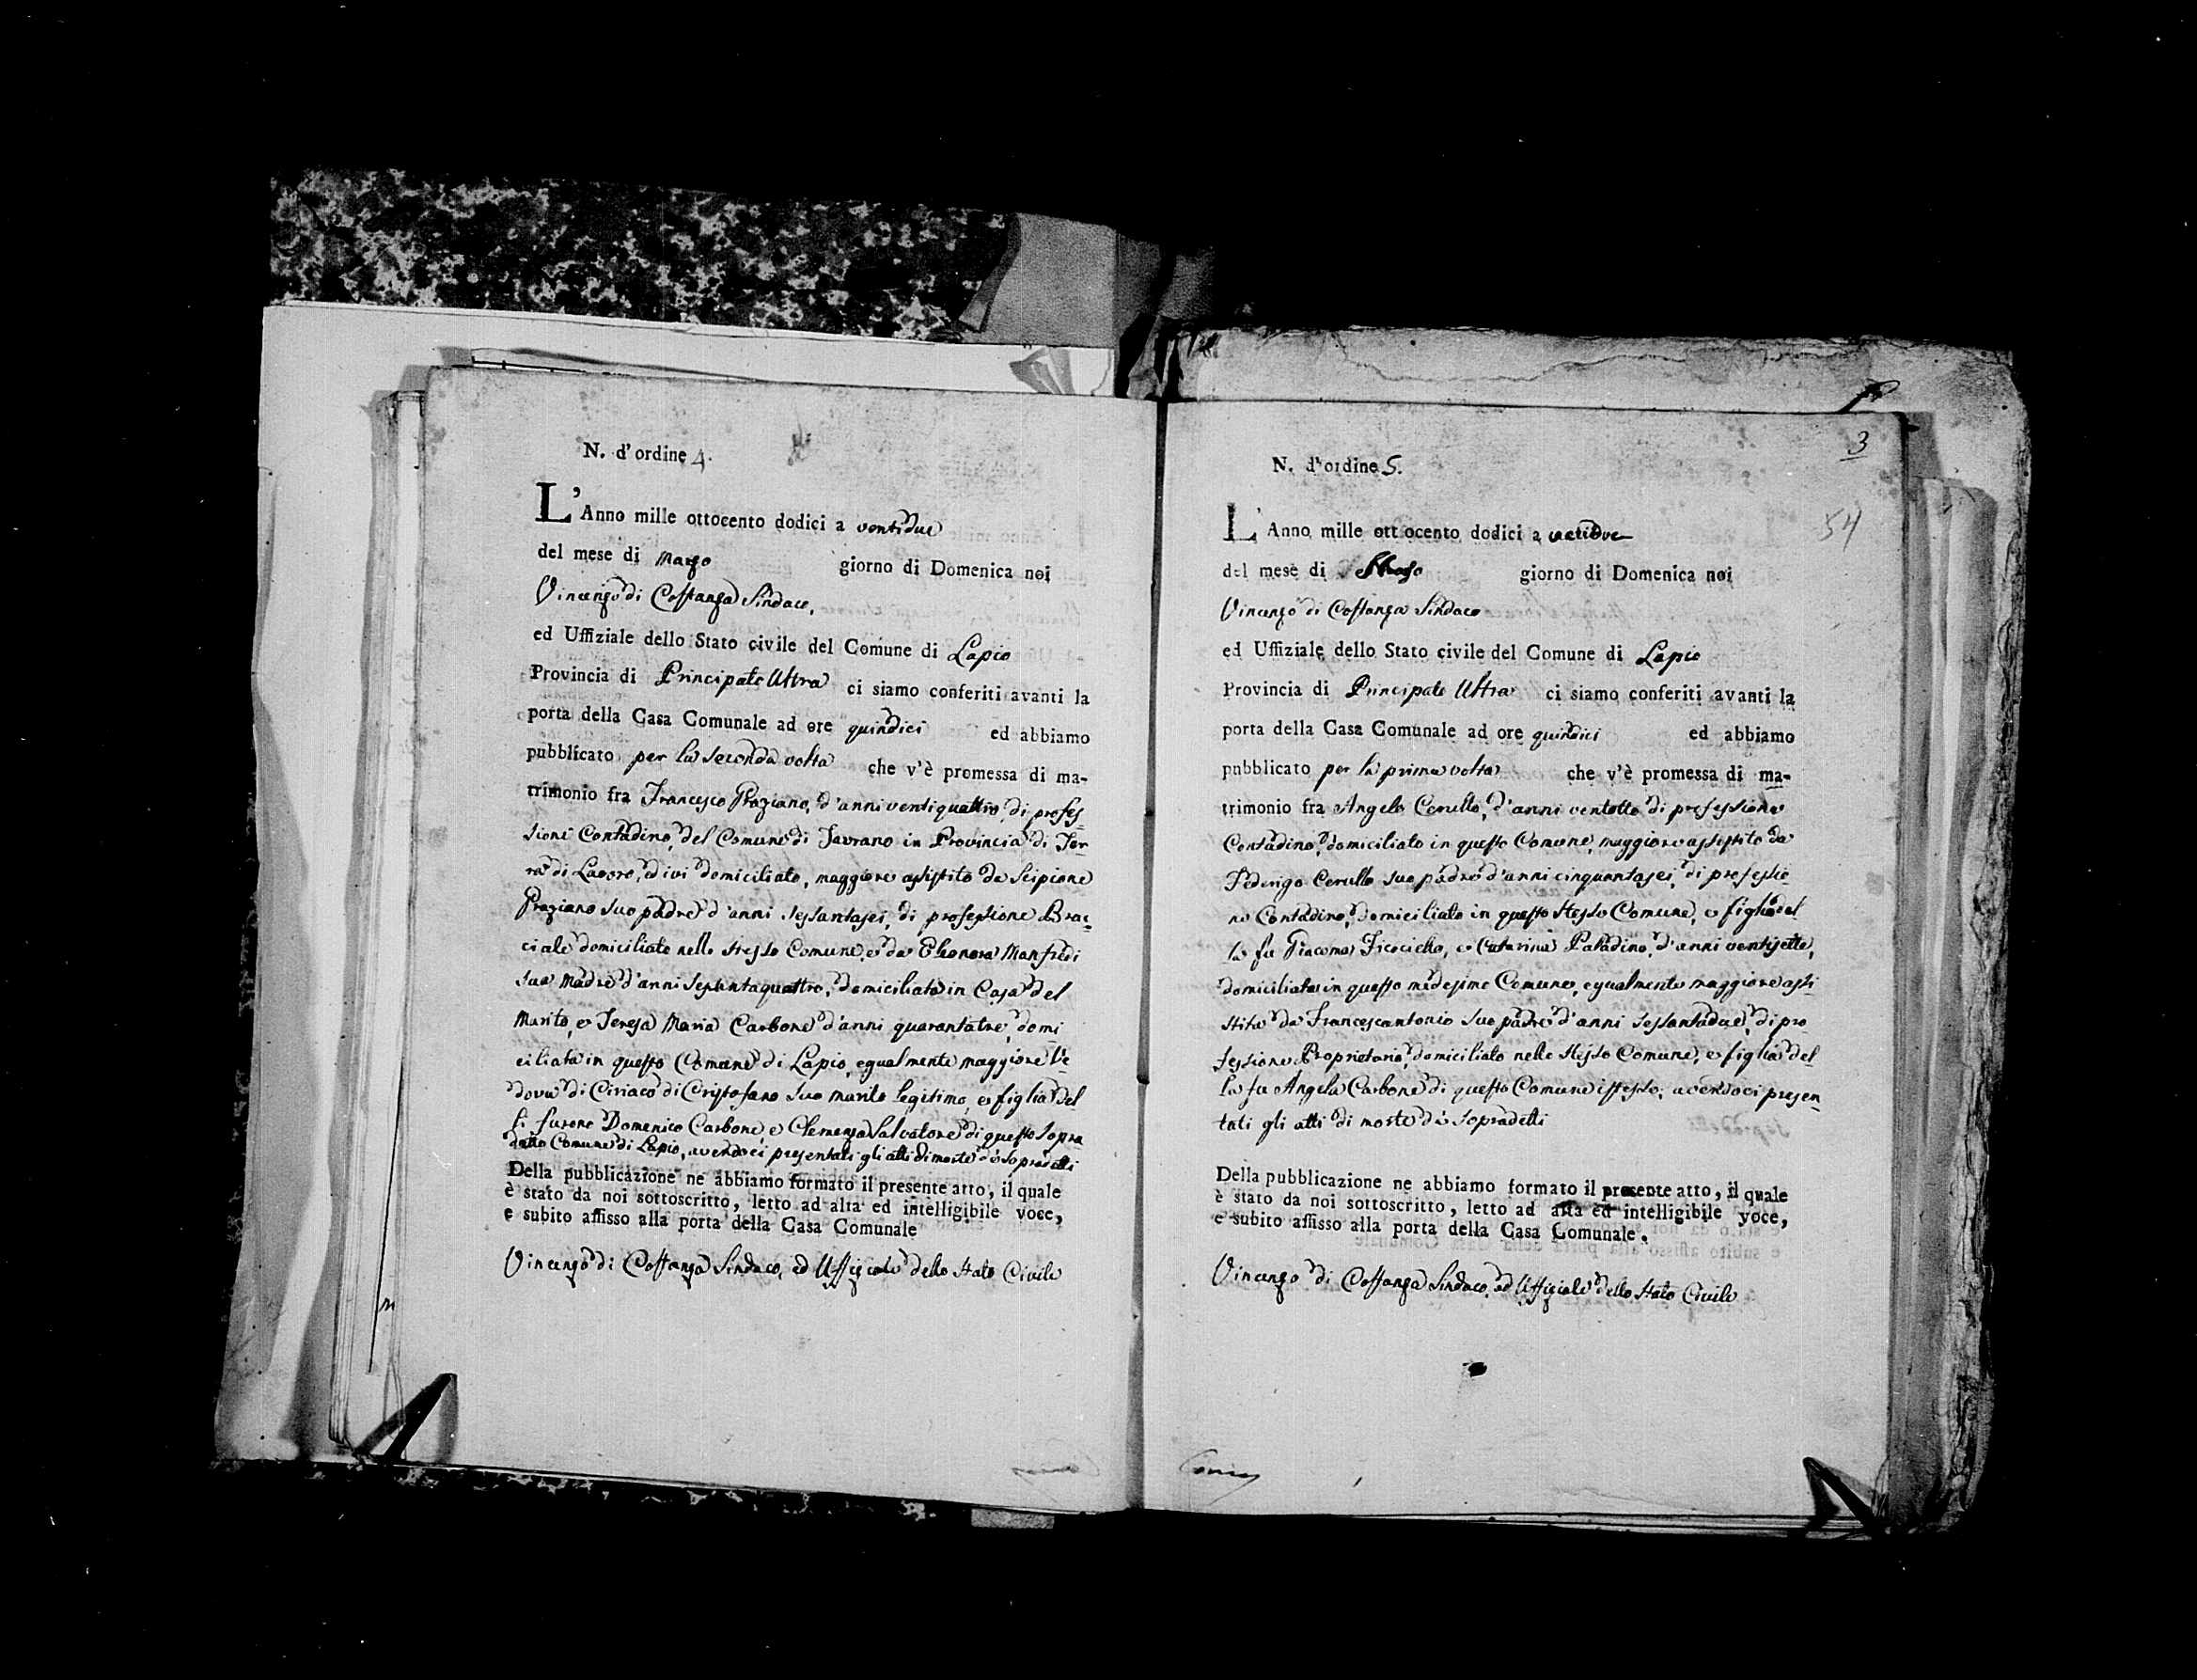 N. d'ordine 4.
L'Anno mille ottocento dodici a ventidue
del mese di Marzo giorno di Domenica noi
Vincenzo di Costanza Sindaco,
ed Uffiziale dello Stato civile del Comune di Lapio
Provincia di Principato Ultra ci siamo conferiti avanti la
porta della Casa Comunale ad ore quindici ed abbiamo
pubblicato per la seconda volta che v'è promessa di ma-
trimonio fra Francesco Graziano, d'anni ventiquattro, di profes-
sione Contadino, del Comune di Taurano in Provincia di Ter-
ra di Lavoro, ed ivi domiciliato, maggiore assistito da Scipione
Graziano suo padre d'anni sessantasei, di professione Brac-
ciale domiciliato nello stesso Comune, e da Eleonora Manfredi
sua Madre d'anni sessantaquattro, domiciliata in Casa del
Marito, e Teresa Maria Carbone d'anni quarantatre, domi
ciliata in questo Comune di Lapio, egualmente maggiore Ve
dova di Ciriaco di Cristofano suo marito legitimo, e figlia del
li furono Domenico Carbone, e Clemenza Salvatore di questo sopra
detto Comune di Lapio, avendoci presentati gli atti di morte de' sopradetti
Della pubblicazione ne abbiamo formato il presente atto, il quale
è stato da noi sottoscritto, letto ad alta ed intelligibile voce,
e subito affisso alla porta della Casa Comunale
Vincenzo di Costanza Sindaco, ed Uffiziale dello Stato Civile
3
54
N. d'ordine 5.
L'Anno mille ottocento dodici a ventidue
del mese di Marzo giorno di Domenica noi
Vincenzo di Costanza Sindaco
ed Uffiziale dello Stato civile del Comune di Lapio
Provincia di Principato Ultra ci siamo conferiti avanti la
porta della Casa Comunale ad ore quindici ed abbiamo
pubblicato per la prima volta che v'è promessa di ma-
trimonio fra Angelo Cerullo, d'anni ventotto di professione
Contadino, domiciliato in questo Comune, maggiore assistito da
Federigo Cerullo suo padre d'anni cinquantasei, di professio-
ne Contadino, domiciliato in questo stesso Comune, e figlio del
la fu Giacoma Ficociello, e Catarina Paladino, d'anni ventisette,
domiciliata in questo medesimo Comune, egualmente maggiore assi-
stita da Francescantonio suo padre d'anni sessantadue, di pro
fessione Proprietario, domiciliato nello stesso Comune, e figlia del
la fu Angela Carbone di questo Comune istesso; avendoci presen
tati gli atti di morte de' sopradetti
Della pubblicazione ne abbiamo formato il presente atto, il quale
è stato da noi sottoscritto, letto ad alta ed intelligibile voce,
e subito affisso alla porta della Casa Comunale.
Vincenzo di Costanza Sindaco, ed Uffiziale dello Stato Civile